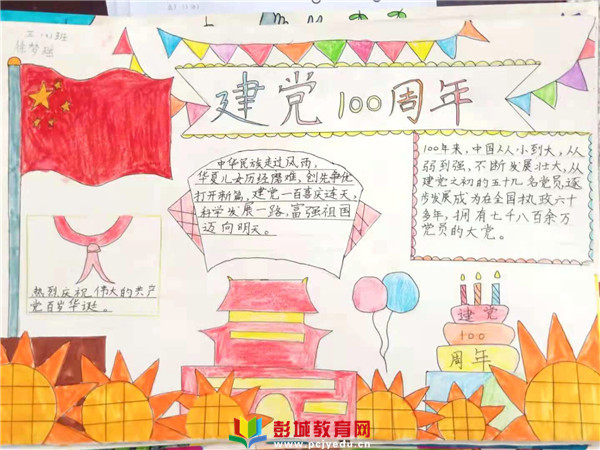 五(1)班
徐梦瑶
建党100周年
中华民族走过风雨，
华夏儿女历经磨难，创先争优
打开新篇，建党一百喜庆连天，
科学发展一路，富强祖国
迈向明天。
100年来，中国从小到大，从
弱到强，不断发展壮大，从
建党之初的五十九名党员，逐
步发展成为在全国执政六十
多年，拥有七千八百余万
党员的大党。
热烈庆祝伟大的共产
党百岁华诞。
建党
100
周年
彭城教育网
www.pcjyedu.cn